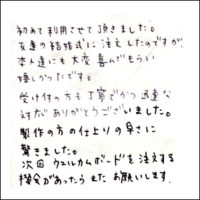 初めて利用させて頂きました。
友達の結婚式に注文したのですが、
本人達にも大変喜んでもらい
嬉しかったです。
受け付の方も丁寧でかつ迅速な
対応ありがとうございました。
製作の方の仕上りの早さに
驚きました。
次回ウェルカムボードを注文する
機会があったらまたお願いします。